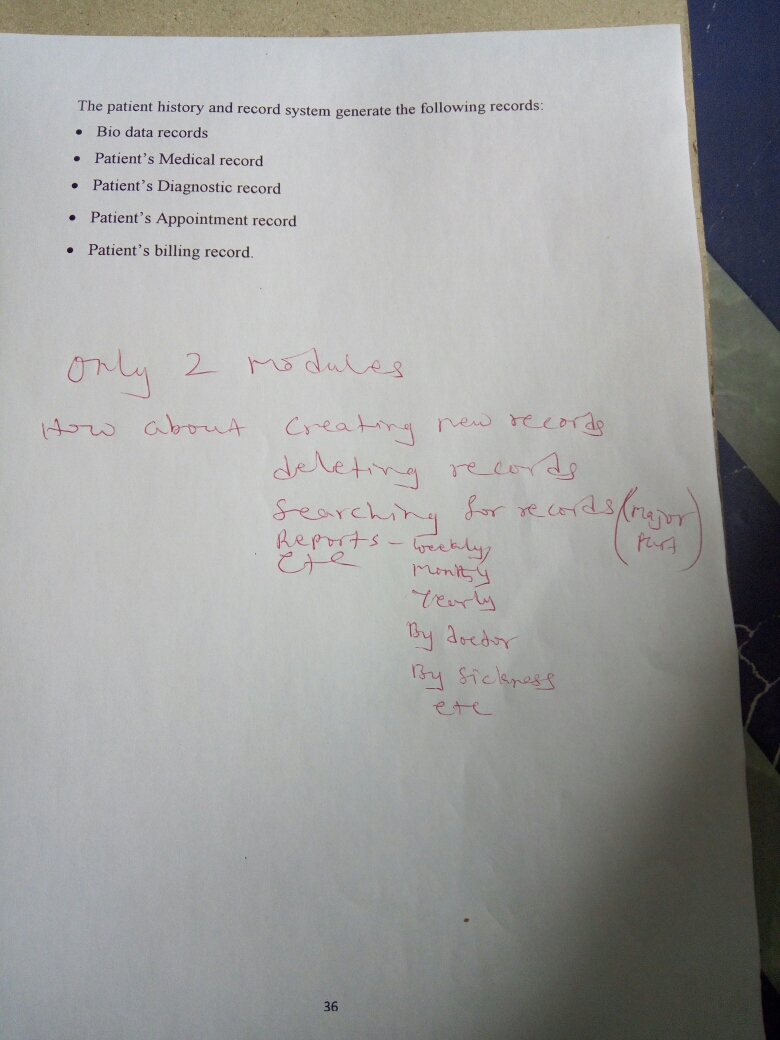 The patient history and record system generate the following records:
• Bio data records
• Patient's Medical record
• Patient's Diagnostic record
• Patient's Appointment record
• Patient's billing record.
Only 2 modules
How about Creating new records
deleting records
Searching for records (Major Part)
Reports - Weekly,
etc Monthly
Yearly
By doctor
By Sickness
etc
36